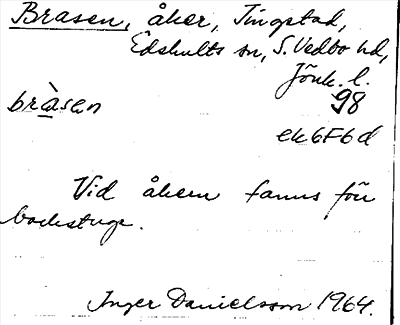 Brasen, åker, Tingstad,
Edshults sn, S. Vedbo hd,
Jönk. l.
bràsen 98
ek6F6d
Vid åkern fanns förr
backstuga.
Inger Danielsson 1964.